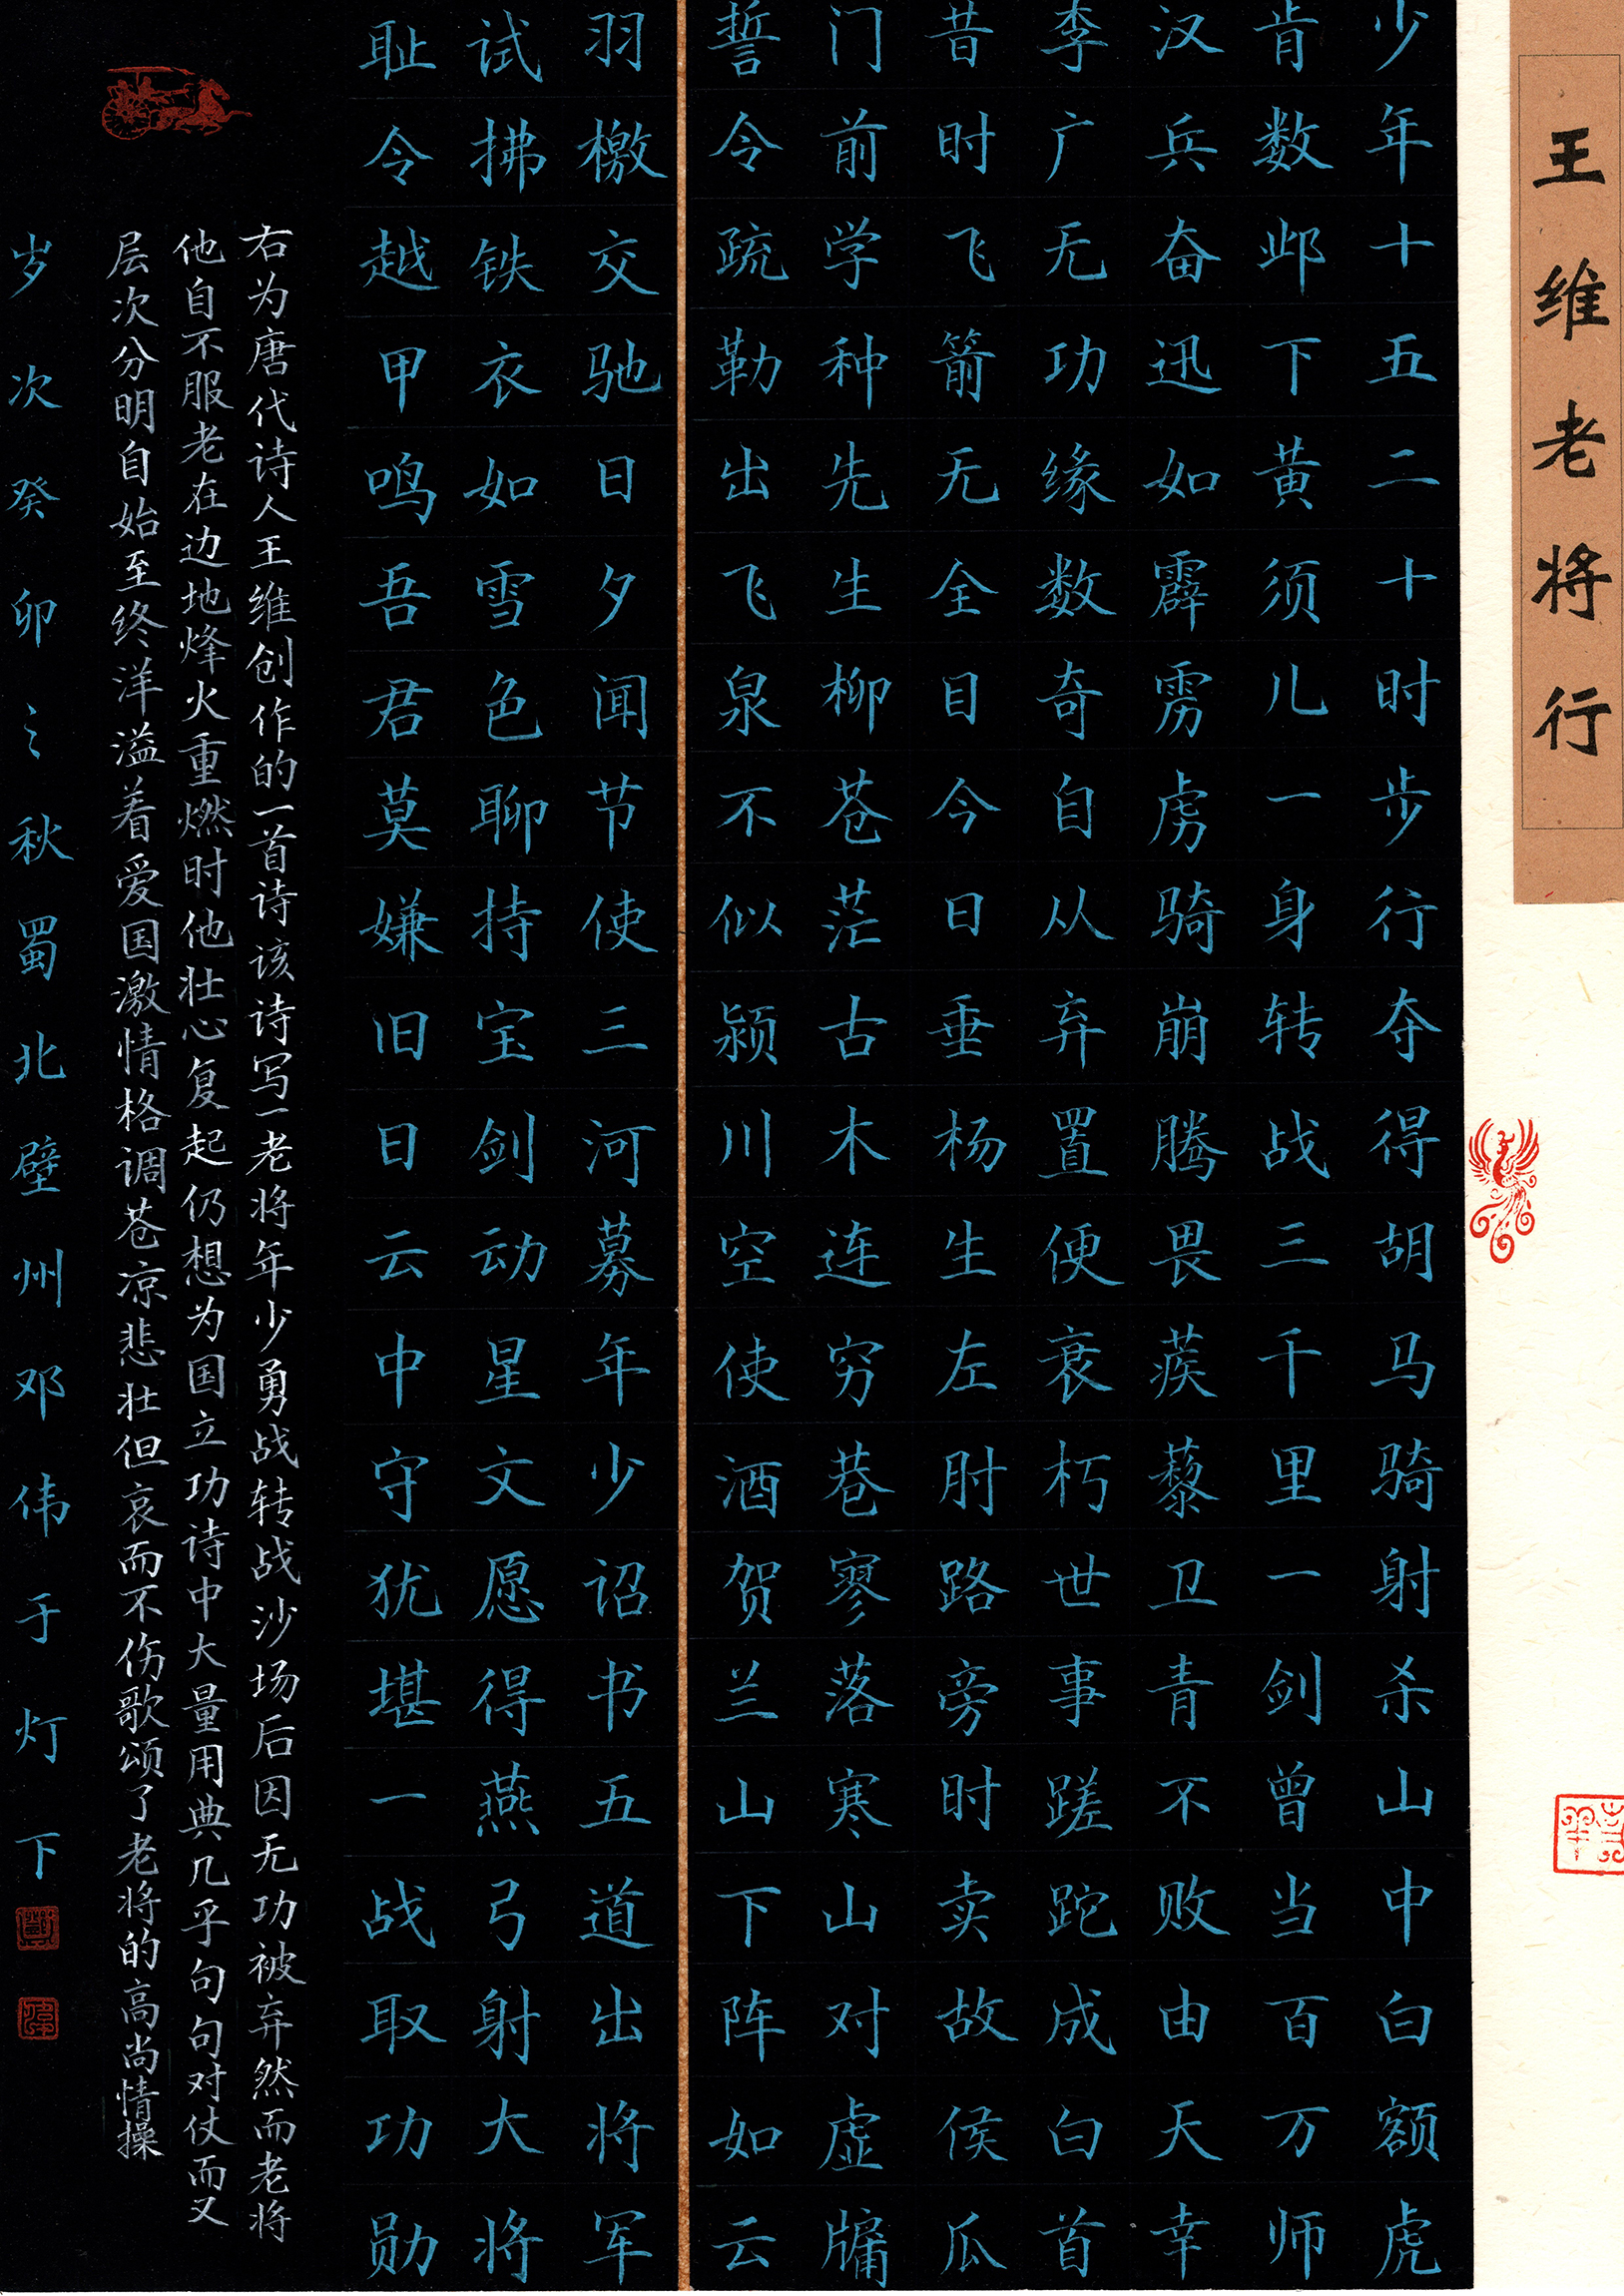 王维老将行
少年十五二十时步行夺得胡马骑射杀山中白额虎
肯数邺下黄须儿一身转战三千里一剑曾当百万师
汉兵奋迅如霹雳虏骑崩腾畏蒺藜卫青不败由天幸
李广无功缘数奇自从弃置便衰朽世事蹉跎成白首
昔时飞箭无全目今日垂杨生左肘路旁时卖故侯瓜
门前学种先生柳苍茫古木连穷巷寥落寒山对虚牖
誓令疏勒出飞泉不似颍川空使酒贺兰山下阵如云
羽檄交驰日夕闻节使三河募年少诏书五道出将军
试拂铁衣如雪色聊持宝剑动星文愿得燕弓射大将
耻令越甲鸣吾君莫嫌旧日云中守犹堪一战取功勋
右为唐代诗人王维创作的一首诗该诗写一老将年少勇战转战沙场后因无功被弃然而老将
他自不服老在边地烽火重燃时他壮心复起仍想为国立功诗中大量用典几乎句句对仗而又
层次分明自始至终洋溢着爱国激情格调苍凉悲壮但哀而不伤歌颂了老将的高尚情操
岁次癸卯之秋蜀北壁州邓伟于灯下